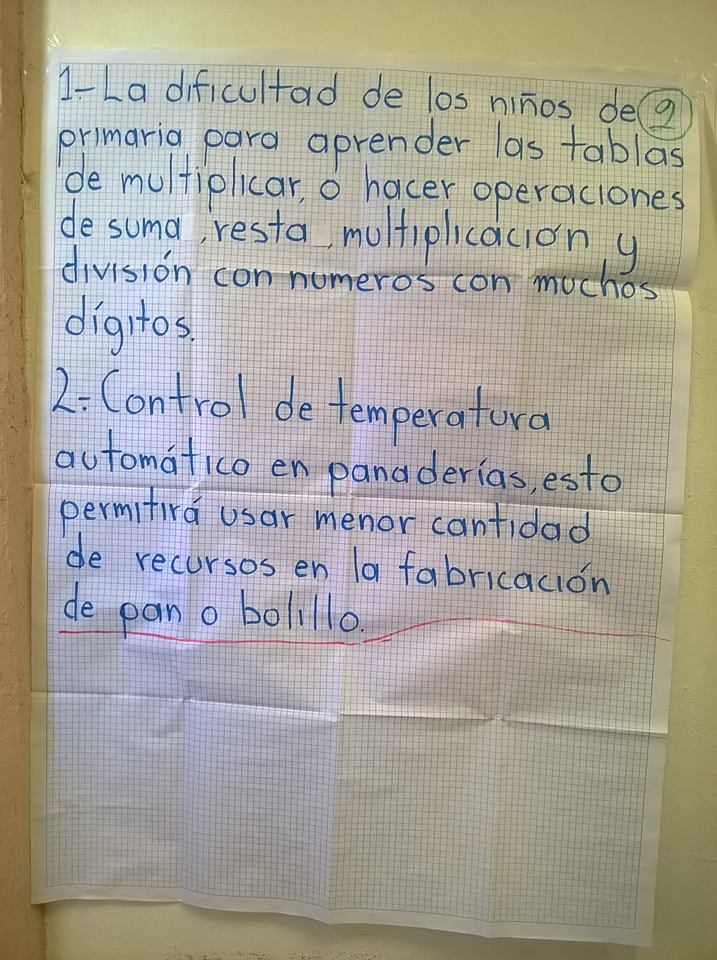 1.- La dificultad de los niños de 9
primaria para aprender las tablas
de multiplicar, o hacer operaciones
de suma, resta, multiplicación y
división con numeros con muchos
dígitos.
2.- Control de temperatura
automático en panaderías, esto
permitirá usar menor cantidad
de recursos en la fabricación
de pan o bolillo.